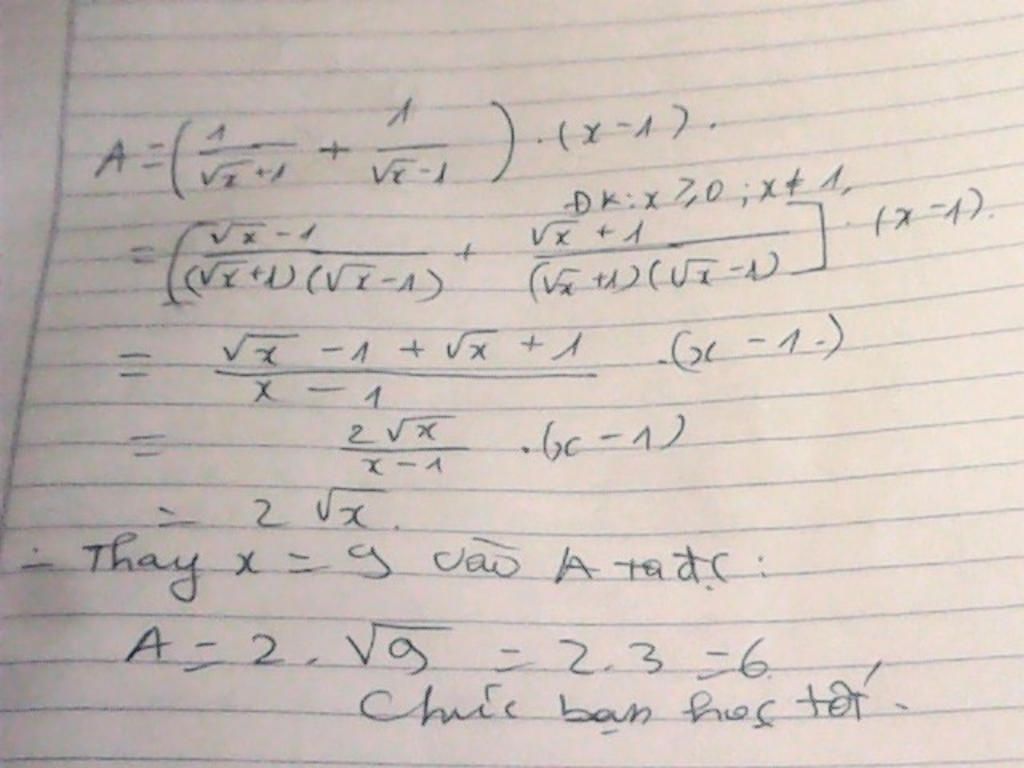 A = (1/(√x+1) + 1/(√x-1)) . (x-1).
ĐK: x ≥ 0 ; x ≠ 1.
= [(√x-1)/((√x+1)(√x-1)) + (√x+1)/((√x+1)(√x-1))] . (x-1).
= (√x - 1 + √x + 1)/(x - 1) . (x - 1.)
= 2√x/(x-1) . (x-1)
= 2√x.
- Thay x = 9 vào A ta đc :
A = 2.√9 = 2.3 = 6.
Chúc bạn học tốt.